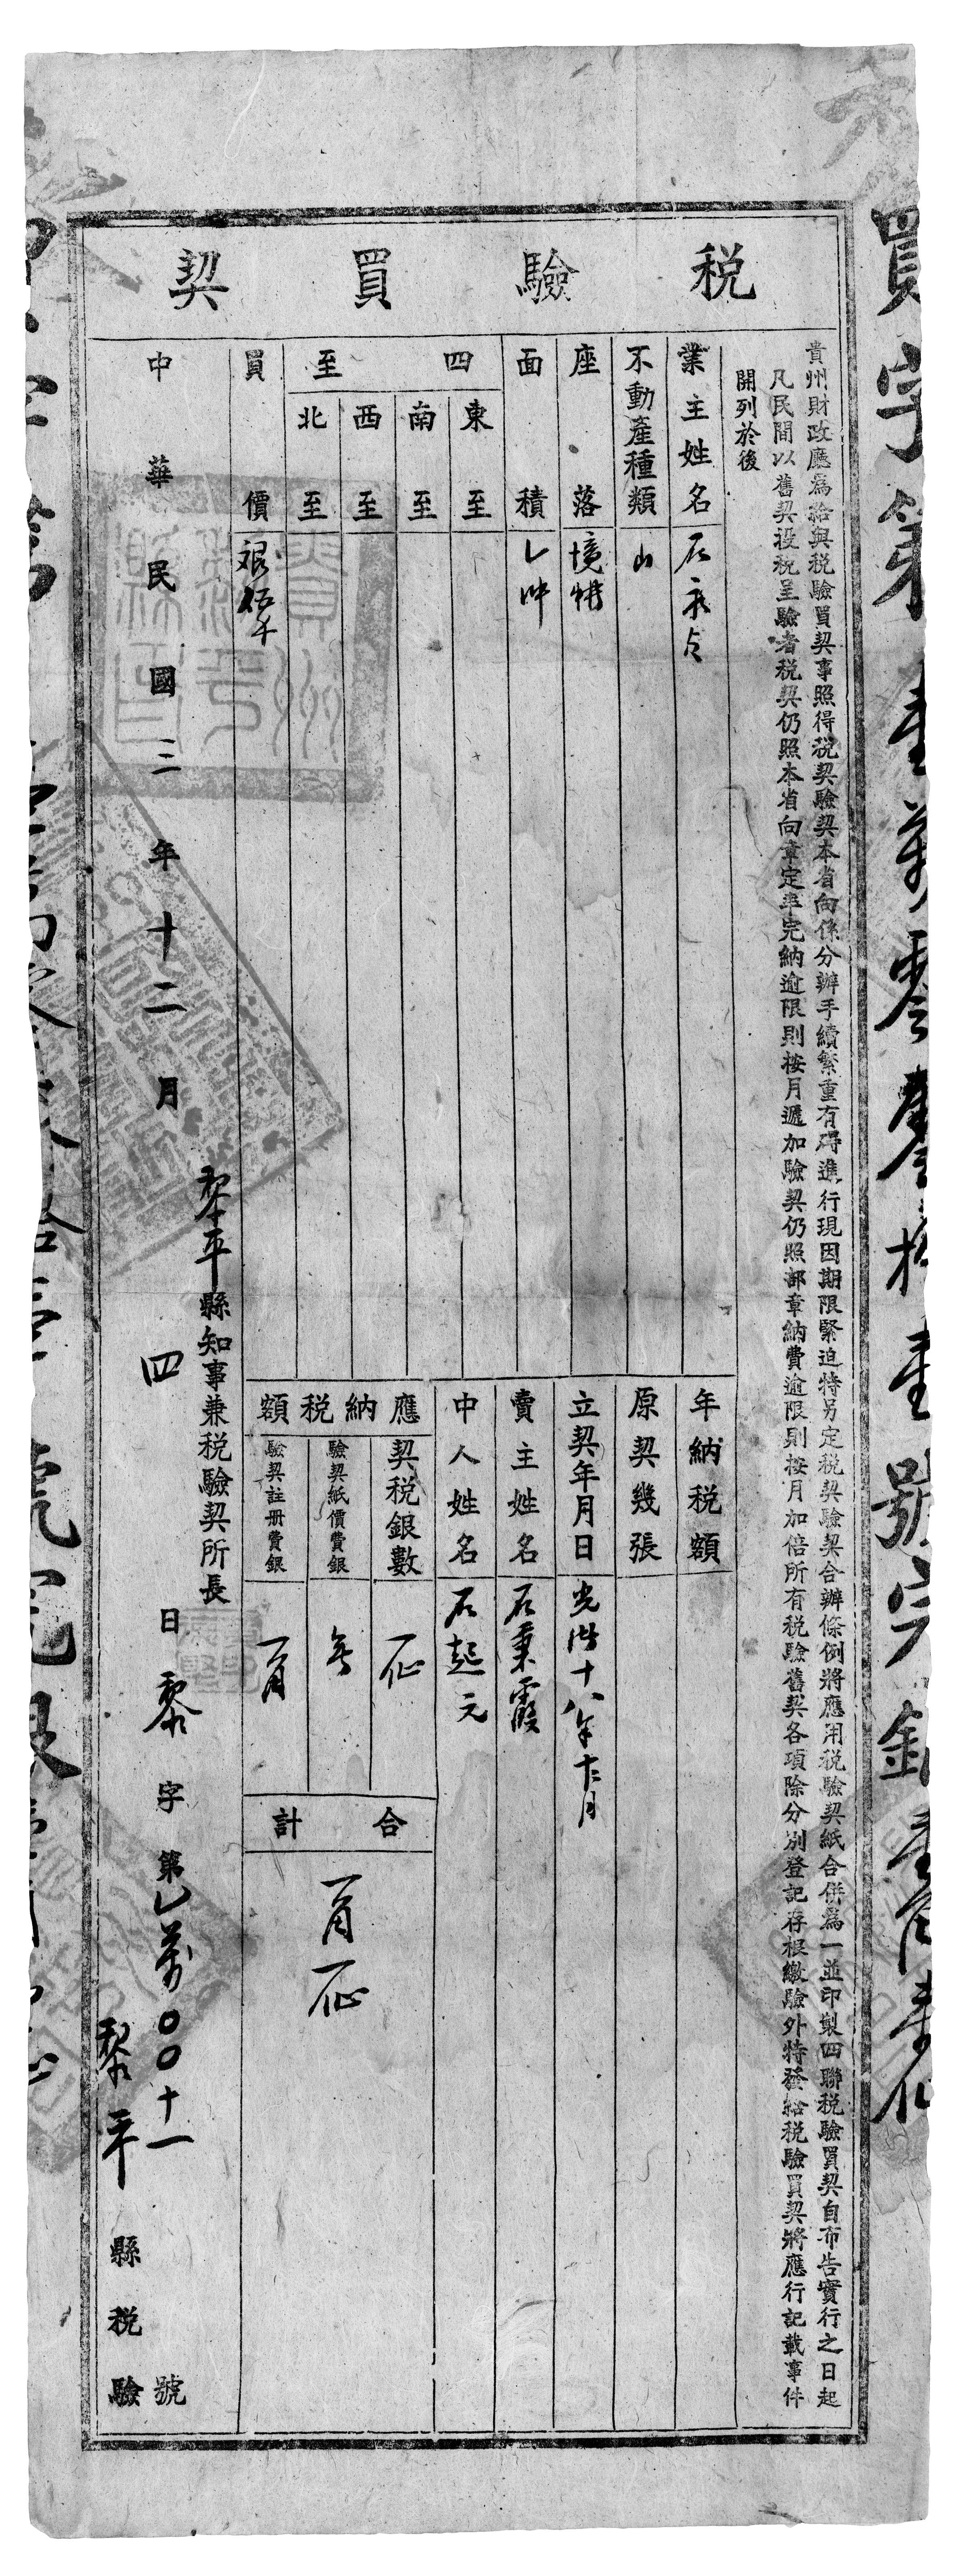 税驗買契
貴州財政廳爲給與税驗買契事照得税契驗契本省向係分辦手續繁重有碍進行現因期限緊迫特另定税契驗契合辦條例將應用税驗契紙合併爲一並印製四聯税驗買契自布告實行之日起
凡民間以舊契投税呈驗者税契仍照本省向章定率完納逾限則按月遞加驗契仍照部章納費逾限則按月加倍所有税驗舊契各項除分别登記存根繳驗外特發給税驗買契將應行記載事件
開列於後
業主姓名 石
不動產種類 山
座落
面積
四至
東至
南至
西至
北至
買價 銀伍千
年納税額
原契幾張
立契年月日 光緒十八年十二月
賣主姓名 石秉霞
中人姓名 石起元
應納税額
契税銀數 一仙
驗契紙價費銀
驗契註册費銀 一角
合計 一角一仙
黎平縣知事兼税驗契所長
中華民國三年十二月四日黎字第乙萬〇〇十一號
黎平縣税驗
買字第壹萬零零拾壹號完銀壹角壹仙